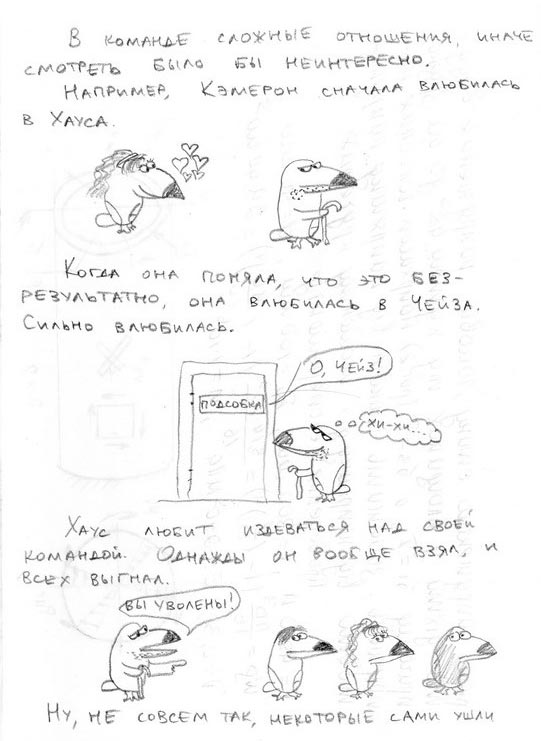 В команде сложные отношения, иначе
смотреть было бы неинтересно.
Например, Кэмерон сначала влюбилась
в Хауса.
Когда она поняла, что это без-
результатно, она влюбилась в Чейза.
Сильно влюбилась.
О, Чейз!
подсобка
Хи-хи...
Хаус любит издеваться над своей
командой. Однажды он вообще взял, и
всех выгнал.
Вы уволены!
Ну, не совсем так, некоторые сами ушли